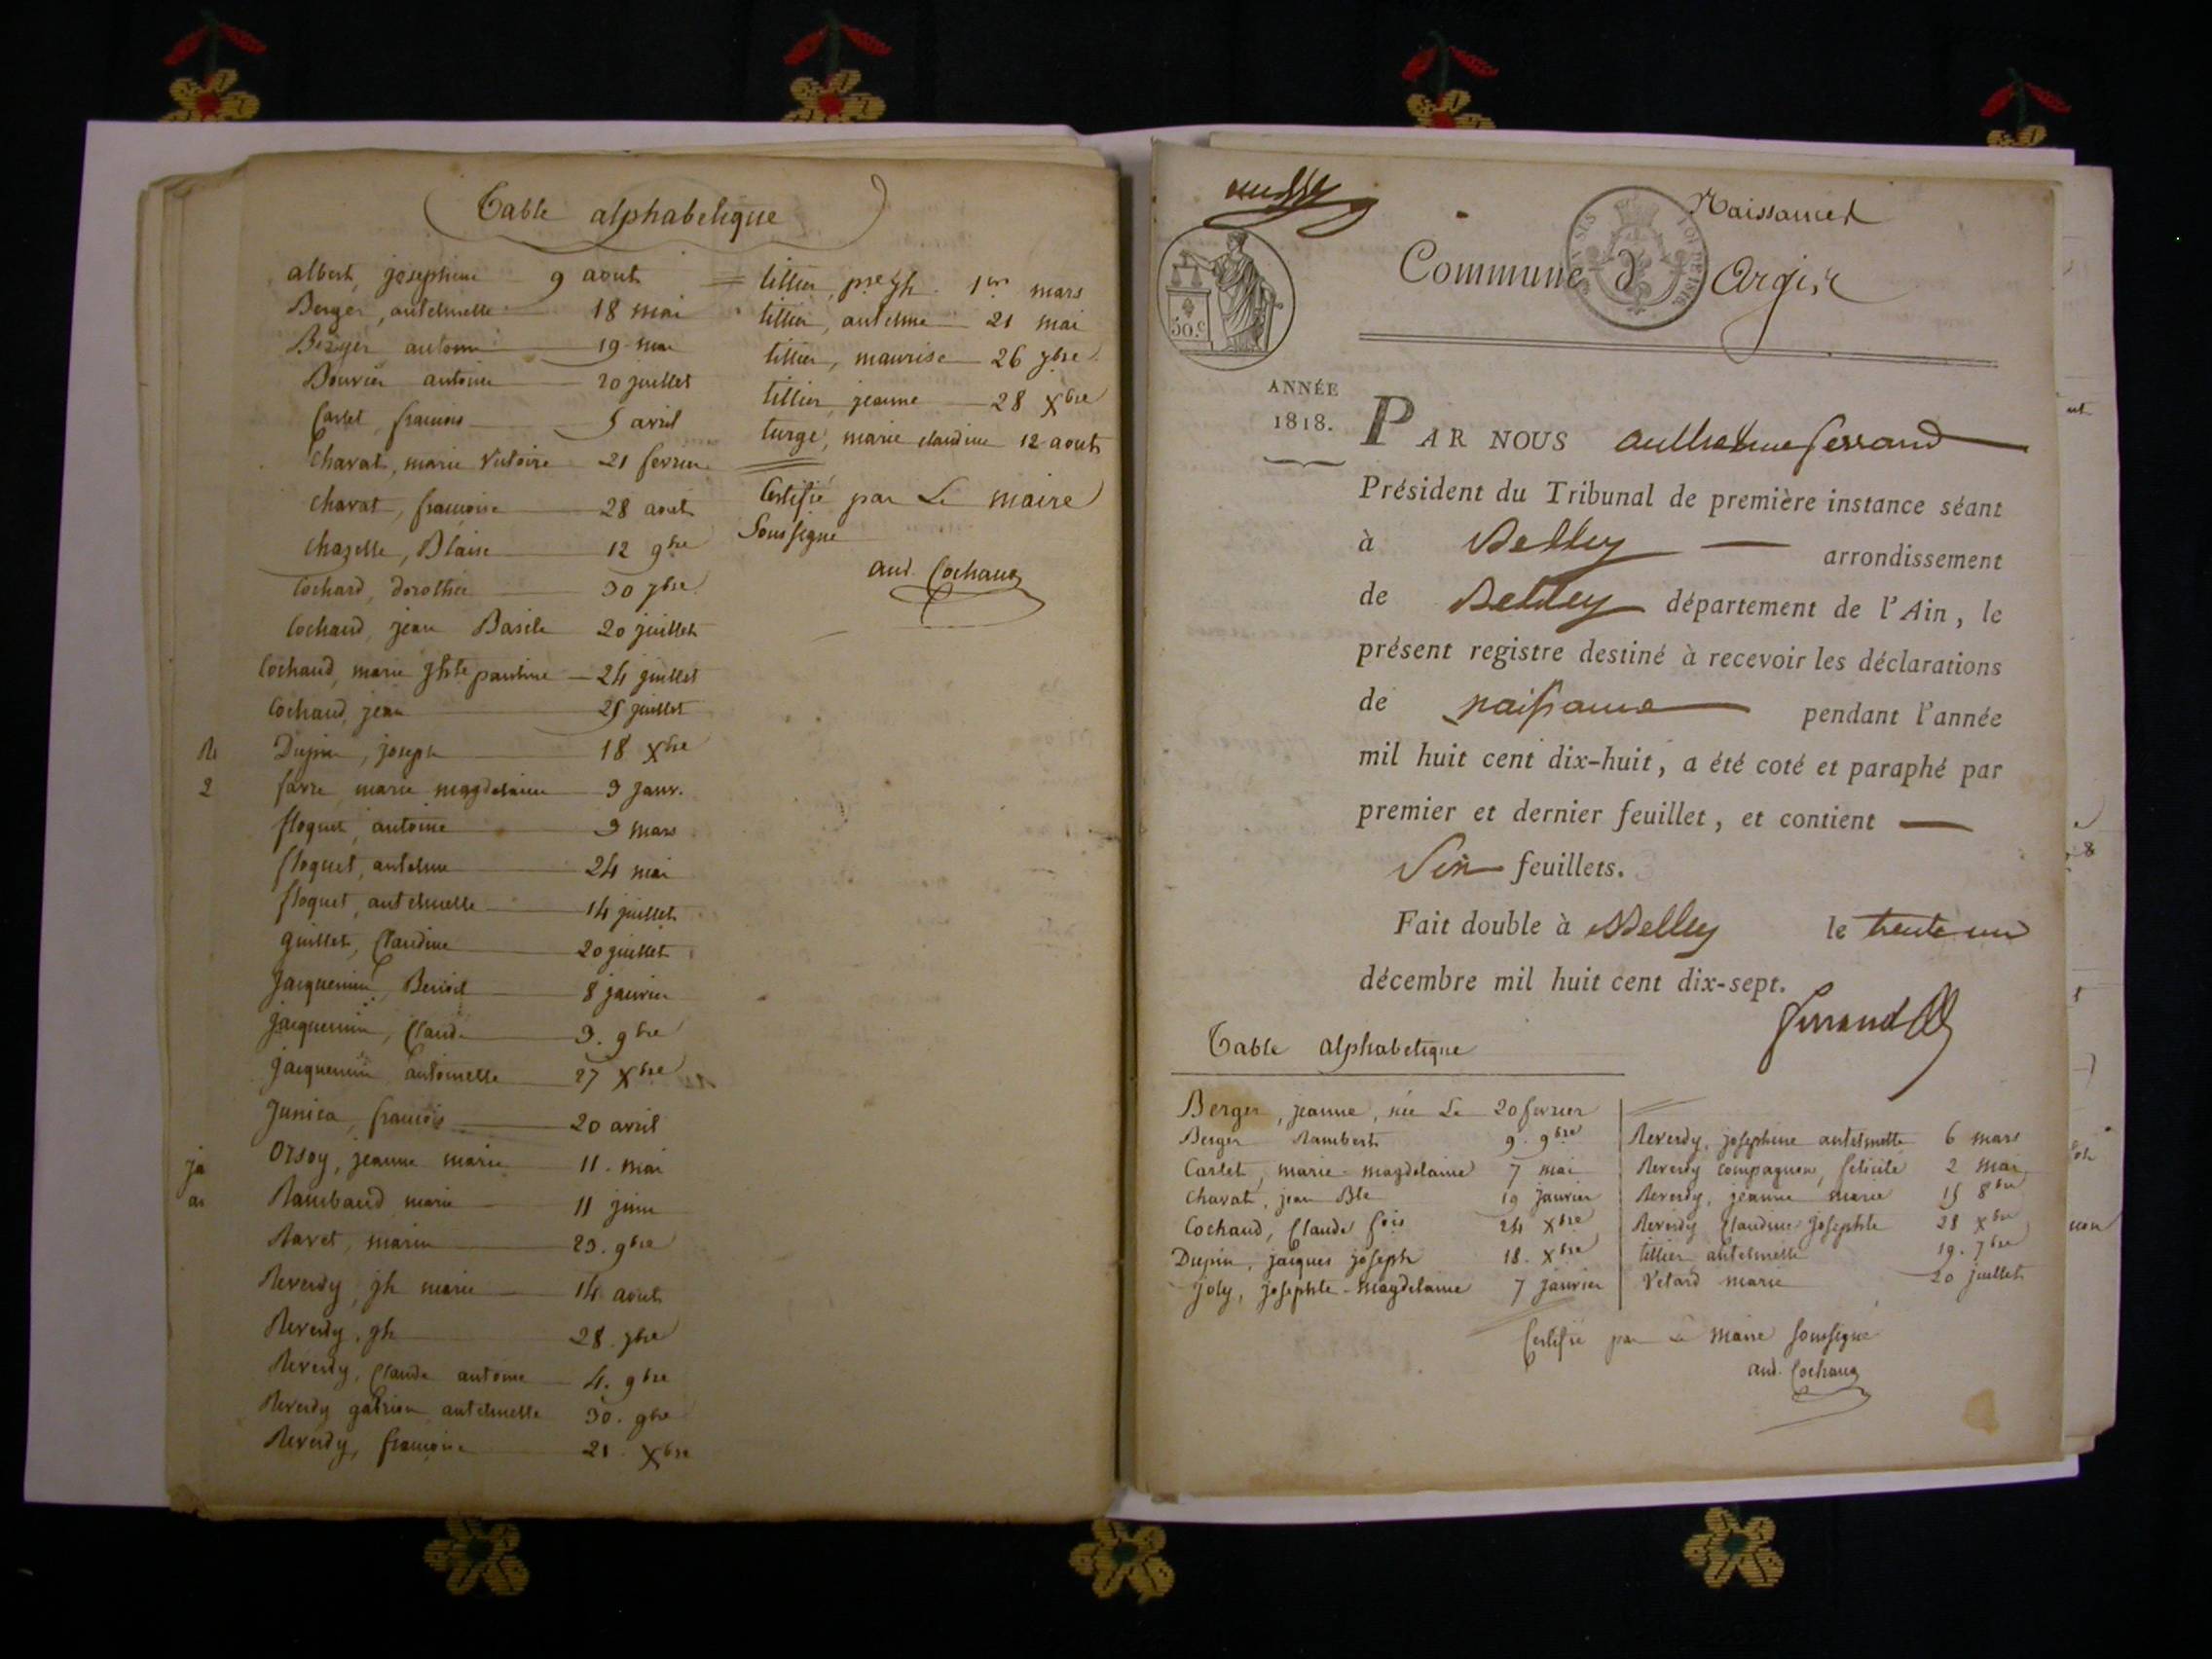 Table alphabetique
albert, josephine 9 aout
Berger, antelmette 18 mai
Berger antoine 19 mai
Bouvier antoine 20 juillet
Carlet, francois 5 avril
Charat, marie Victoire 21 fevrier
charat, francoise 28 aout
chazelle, Blaise 12 9bre
Cochard, dorothée 30 7bre
Cochaud, jean Basile 20 juillet
Cochaud, marie jhte pauline 24 juillet
Cochaud, jean 25 juillet
Dupin, joseph 18 Xbre
favre marie magdelaine 3 janv.
floquet, antoine 3 mars
floquet, antelme 24 mai
floquet, antelmette 14 juillet
guillet, Claudine 20 juillet
jacquemin, Benoit 8 janvier
jacquemin, Claude 3. 9bre
jacquemin antoinette 27 Xbre
Junica, francois 20 avril
Orsoy, jeanne marie 11. mai
Rambaud marie 11 juin
Ravet, marie 23. 9bre
Reverdy, jh marie 14 aout
Reverdy, jh 28. 7bre
Reverdy, Claude antoine 4. 9bre
Reverdy antelmette 30. 9bre
Reverdy, francoise 21. Xbre
tillier, jh. 1er mars
tillier, antelme 21 mai
tillier, maurise 26 7bre
tillier, jeanne 28 Xbre
turge, marie claudine 12 aout
Certifié par Le maire
Soussigné
and. Cochaud
Naissances
Commune d'Argis
50 c
ANNÉE
1818.
PAR NOUS Anthelme ferrand
Président du Tribunal de première instance séant
à Belley arrondissement
de Belley département de l'Ain, le
présent registre destiné à recevoir les déclarations
de naissance pendant l'année
mil huit cent dix-huit, a été coté et paraphé par
premier et dernier feuillet, et contient
Six feuillets.
Fait double à Belley le trente un
décembre mil huit cent dix-sept.
Ferrand
Table alphabetique
Berger, jeanne, née Le 20 fevrier
Berger Rambert 9. 9bre
Carlet, marie-magdelaine 7 mai
Charat, jean Bte 19 janvier
Cochaud, Claude fois 24 Xbre
Dupin, jacques joseph 18. Xbre
joly, josephte-magdelaine 7 janvier
Reverdy, josephine antelmette 6 mars
Reverdy compagnon, felicité 2 mai
Reverdy, jeanne marie 15 8bre
Reverdy Claudine josephte 28 Xbre
tillier antelmette 19. 7bre
Vetard marie 20 juillet
Certifié par Le Maire Soussigné
and. Cochaud